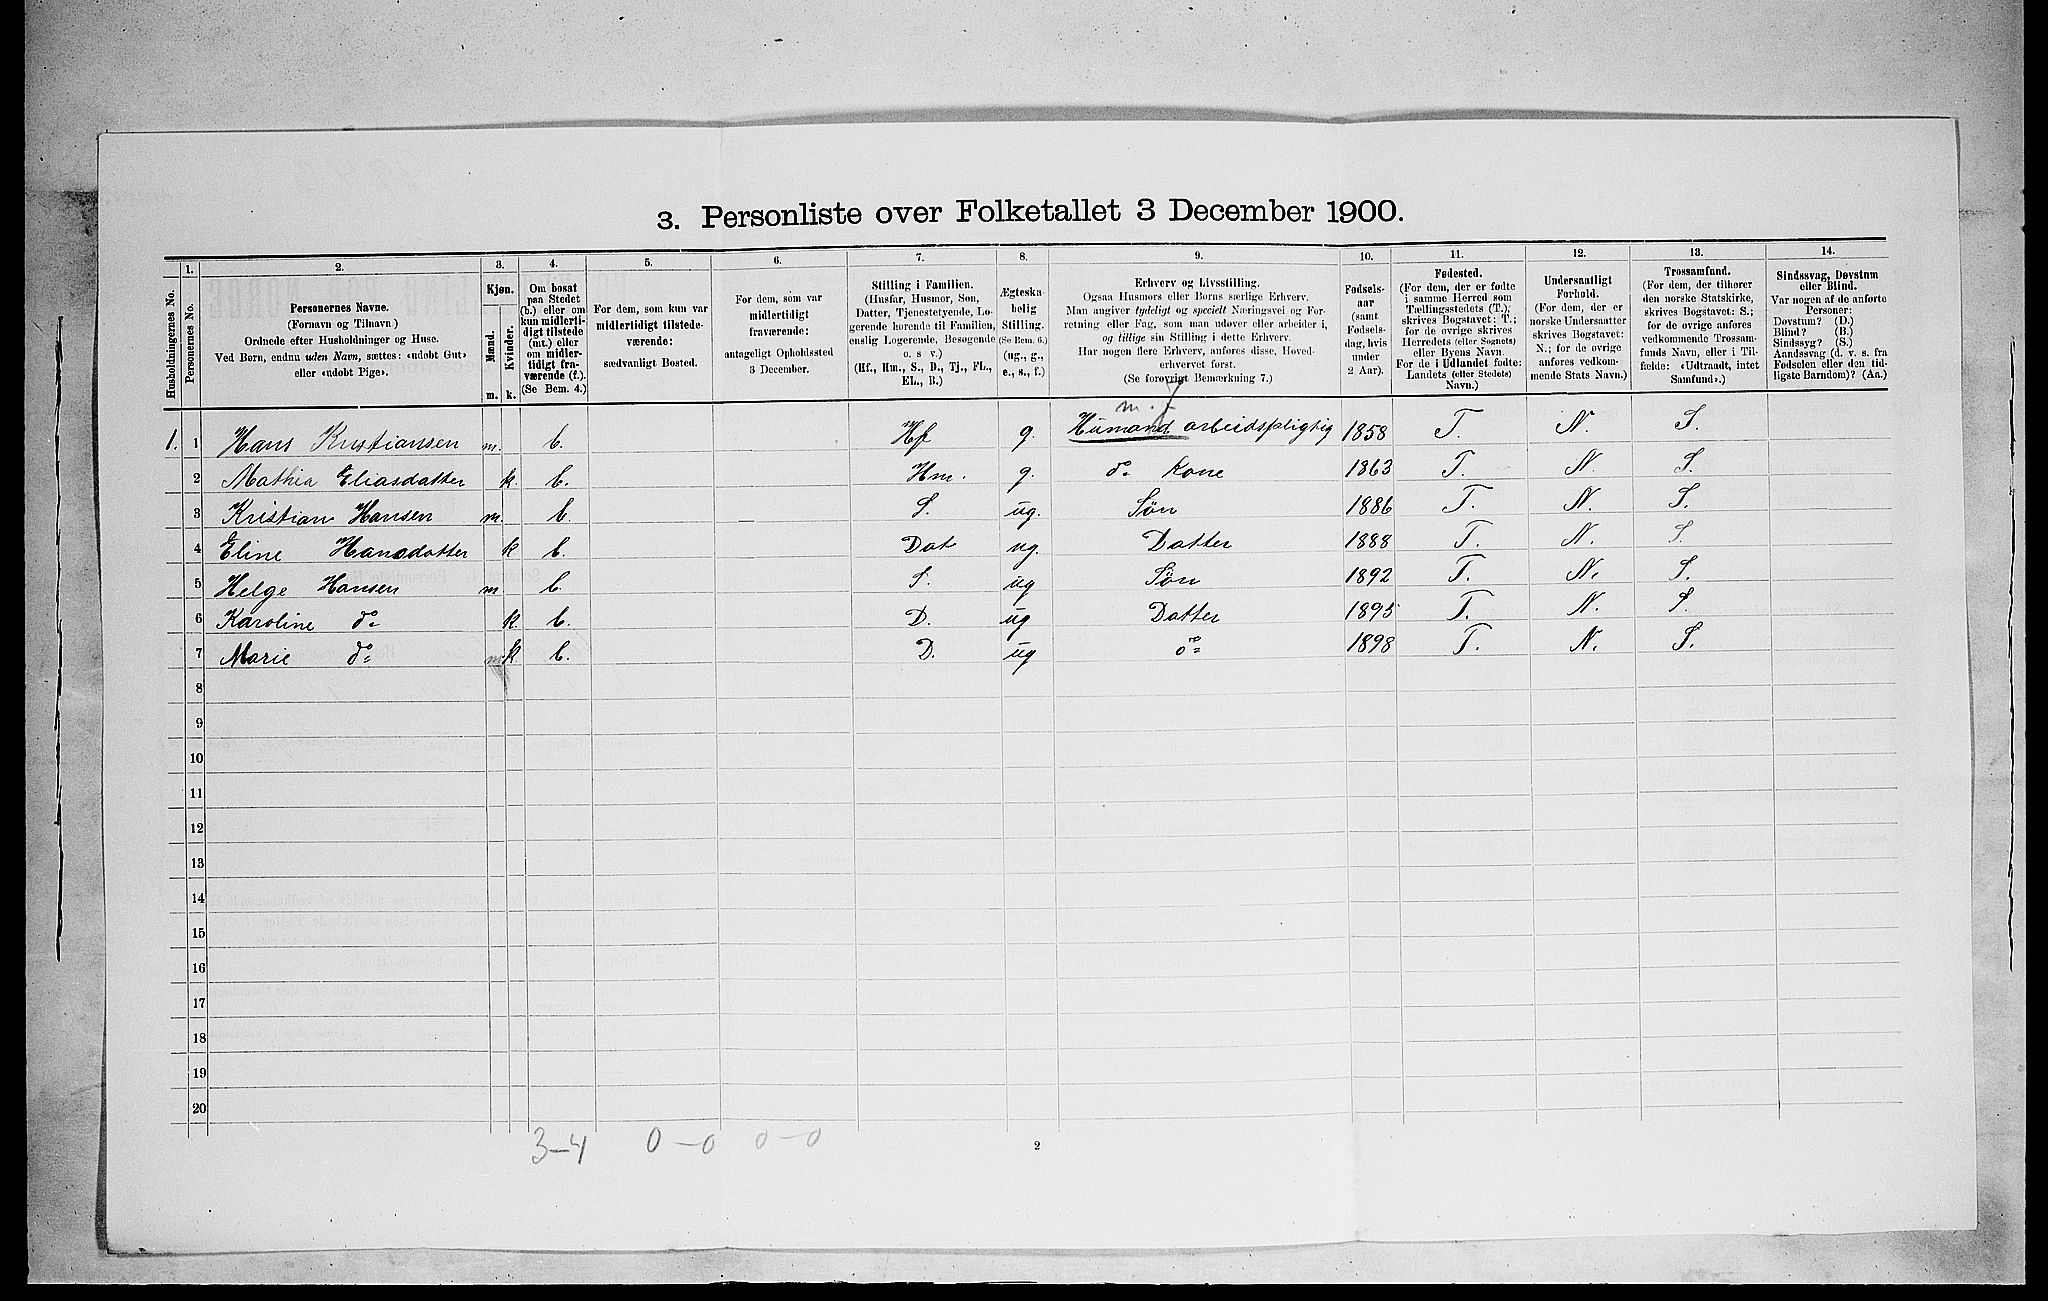 3. Personliste over Folketallet 3 December 1900.
Husholdningernes No.
1.
Personernes No.
2.
Personernes Navne.
(Fornavn og Tilnavn.)
Ordnede efter Husholdninger og Huse.
Ved Børn, endnu uden Navn, sættes: «udøbt Gut»
eller «udøbt Pige».
3.
Kjøn.
Mænd.
Kvinder.
m. k.
4.
Om bosat
paa Stedet
(b.) eller om
kun midlerti-
digt tilstede
(mt.) eller
om midler-
tidigt fra-
værende (f.).
(Se Bem. 4.)
5.
For dem, som kun var
midlertidigt tilstede-
værende:
sædvanligt Bosted.
6.
For dem, som var
midlertidigt
fraværende:
antageligt Opholdssted
3 December.
7.
Stilling i Familien.
(Husfar, Husmor, Søn,
Datter, Tjenestetyende, Lo-
gerende hørende til Familien,
enslig Logerende, Besøgende
o. s. v.)
(Hf., Hm., S., D., Tj., FL.,
EL., B.)
8.
Ægteska-
belig
Stilling.
(Se Bem. 6.)
(ug., g.,
e., s., f.)
9.
Erhverv og Livsstilling.
Ogsaa Husmors eller Børns særlige Erhverv.
Man angiver tydeligt og specielt Næringsvei og For-
retning eller Fag, som man udøver eller arbeider i,
og tillige sin Stilling i dette Erhverv.
Har nogen flere Erhverv, anføres disse, Hoved-
erhvervet først.
(Se forøvrigt Bemærkning 7.)
10.
Fødsels-
aar
(samt
Fødsels-
dag, hvis
under
2 Aar).
11.
Fødested.
(For dem, der er fødte
i samme Herred som
Tællingsstedets (T.);
skrives Bogstavet: T.;
for de øvrige skrives
Herredets (eller Sognets)
eller Byens Navn.
For de i Udlandet fødte:
Landets (eller Stedets)
Navn.)
12.
Undersaatligt
Forhold.
(For dem, der er
norske Undersaatter
skrives Bogstavet:
N.; for de øvrige
anføres vedkom-
mende Stats Navn.)
13.
Trossamfund.
(For dem, der tilhører
den norske Statskirke,
skrives Bogstavet: S.;
for de øvrige anføres
vedkommende Trossam-
funds Navn, eller i Til-
fælde: «Udtraadt, intet
Samfund».)
14.
Sindssvag, Døvstum
eller Blind.
Var nogen af de anførte
Personer:
Døvstum? (D.)
Blind? (B.)
Sindssyg? (S.)
Aandssvag (d. v. s. fra
Fødselen eller den tid-
ligste Barndom)? (Aa.)
m. J
1. 1 Hans Kristiansen m. b. Hf g. Husmand arbeidspligtig 1858 T. N. S.
2 Mathia Eliasdatter k b. Hm. g. do Kone 1863 T. N. S.
3 Kristian Hansen m. b. S. ug. Søn 1886 T. N. S.
4 Eline Hansdatter k b. Dat ug. Datter 1888 T. N. S.
5 Helge Hansen m b. S. ug Søn 1892 T. N. S.
6 Karoline do k. b. D. ug Datter 1895 T. N. S.
7 Marie do k b. D. ug do 1898 T. N. S.
8
9
10
11
12
13
14
15
16
17
18
19
20
3-4 0-0 0-0
2